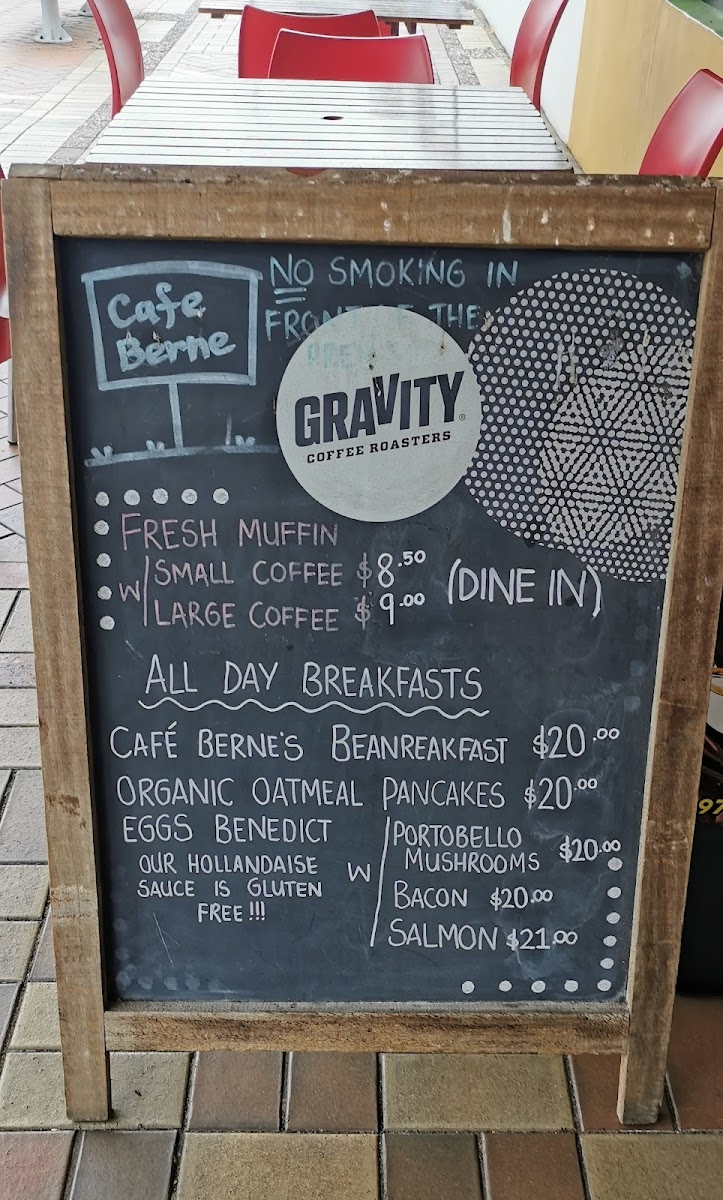 Cafe
Berne
NO SMOKING IN
THE
GRAVITY®
COFFEE ROASTERS
FRESH MUFFIN
W/ SMALL COFFEE $8.50
LARGE COFFEE $9.00
(DINE IN)
ALL DAY BREAKFASTS
CAFÉ BERNE'S BEANREAKFAST $20.00
ORGANIC OATMEAL PANCAKES $20.00
EGGS BENEDICT
OUR HOLLANDAISE
SAUCE IS GLUTEN
FREE!!!
W/ PORTOBELLO
MUSHROOMS $20.00
BACON $20.00
SALMON $21.00
97